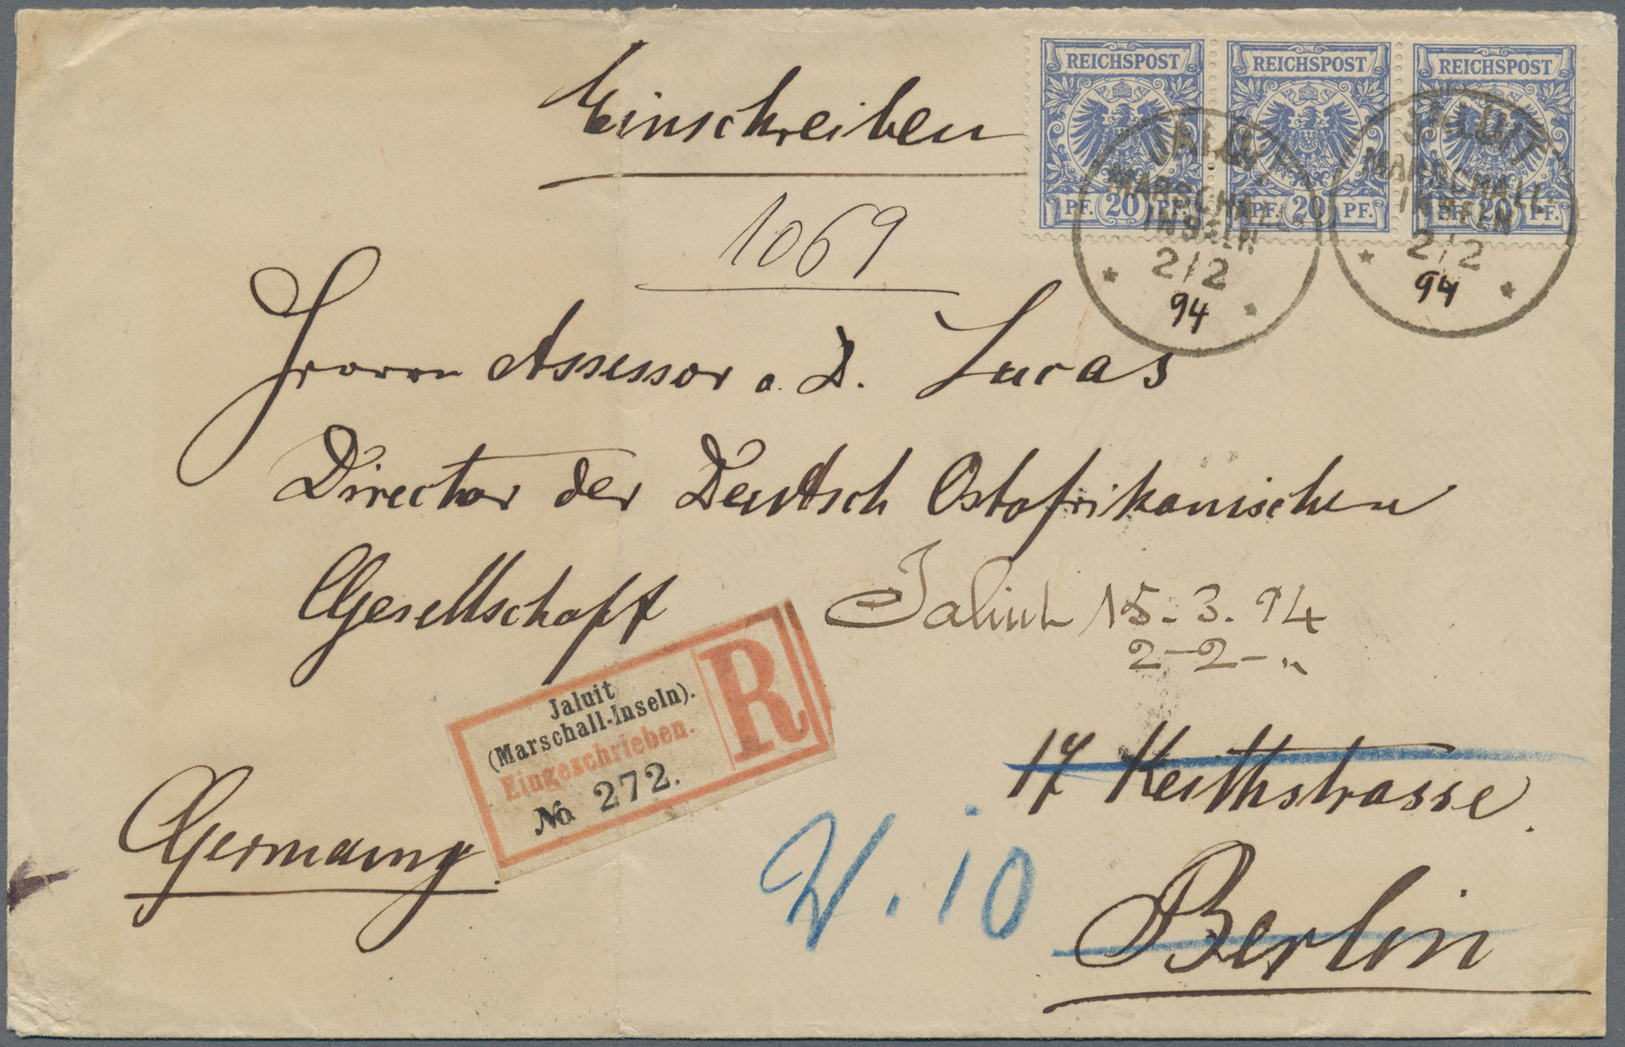 REICHSPOST REICHSPOST REICHSPOST
PF. 20 PF. PF. 20 PF. PF. 20 PF.
JALUIT
MARSCHALL-
INSELN
2/2
94
JALUIT
MARSCHALL-
INSELN
2/2
94
Einschreiben
1069
Herrn Assessor a. D. Lucas
Director der Deutsch Ostafrikanischen
Gesellschaft
Jaluit 15. 3. 94
2-2-"
Jaluit
(Marschall-Inseln).
Eingeschrieben.
No 272.
R
17 Keithstrasse.
W. 10
Germany.
Berlin